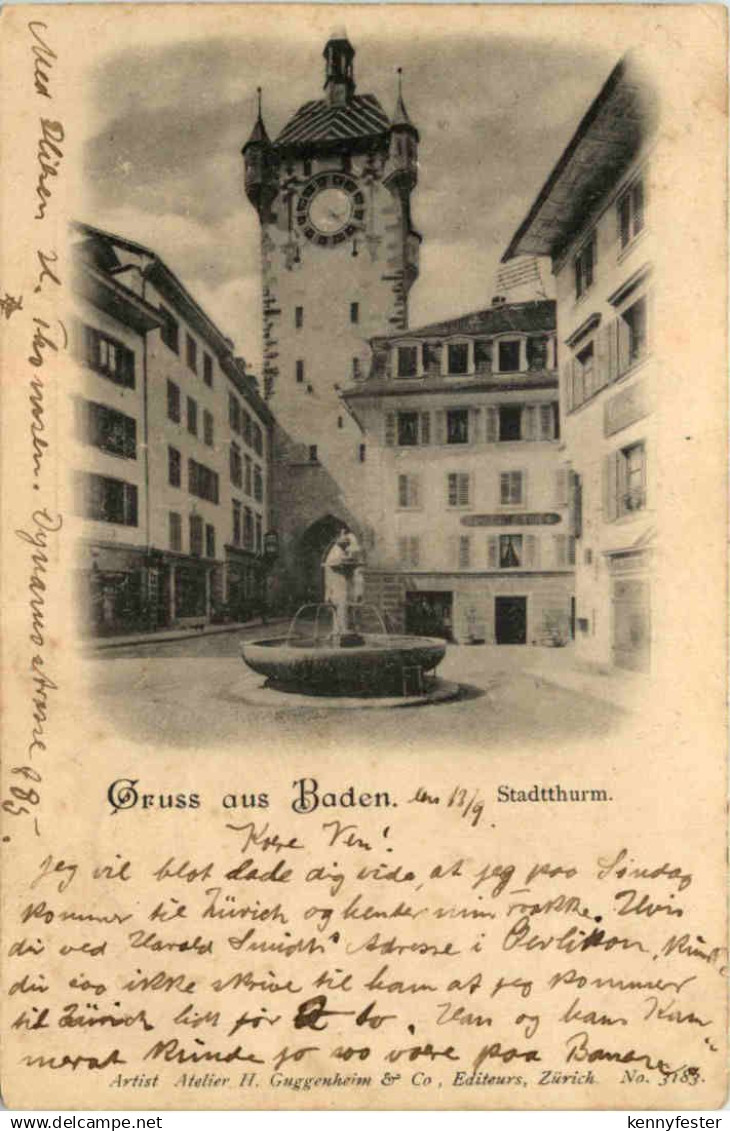 Gruss aus Baden. den 13/9 Stadtthurm.
Kjere Ven!
Jeg vil blot lade dig vide, at jeg paa Söndag
kommer til Zürich og henter min Frakke. Hvis
du ved Harold Smidth's Adresse i Oerlikon, kunde
du saa ikke skrive til ham at jeg kommer
til Zürich lidt før to. Han og hans Kam
merat kunde jo saa være paa Banen.
Med Hilsen H. Thomsen. Dynamostrasse
Artist Atelier H. Guggenheim & Co, Editeurs, Zürich. No. 3183.
delcampe.net
kennyfester